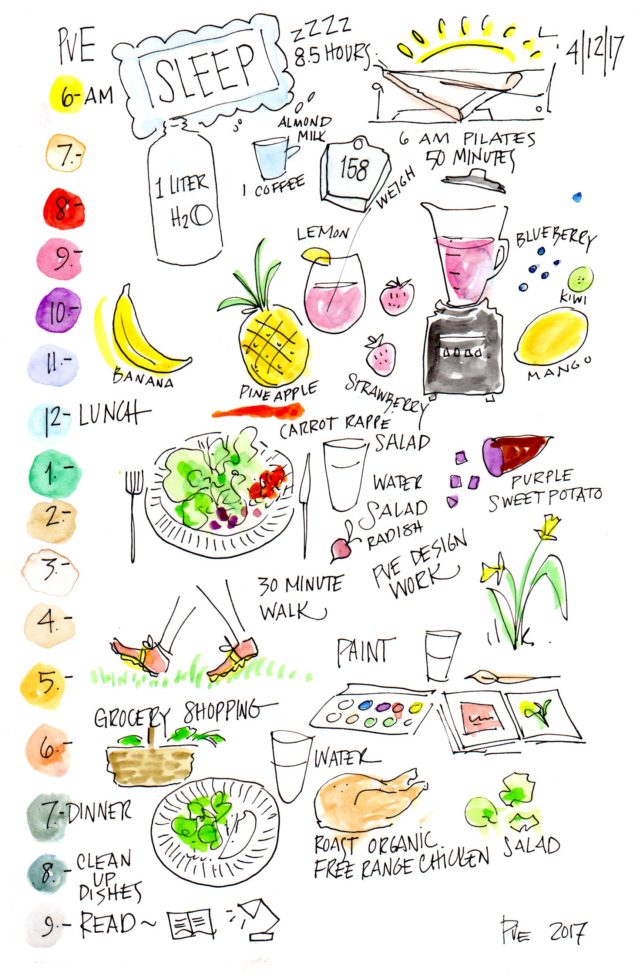 PVE
zzzz
8.5 HOURS
SLEEP
4/12/17
6- AM
ALMOND
MILK
6 AM PILATES
50 MINUTES
7.-
1 COFFEE
158
WEIGH
1 LITER
H2O
8.-
LEMON
BLUEBERRY
9.-
KIWI
10.-
11.-
BANANA
PINEAPPLE
STRAWBERRY
MANGO
12- LUNCH
CARROT RAPPE
SALAD
1.-
WATER
PURPLE
SWEET POTATO
2.-
SALAD
RADISH
PVE DESIGN
WORK
3.-
30 MINUTE
WALK
4.-
PAINT
5.-
GROCERY SHOPPING
6.-
WATER
7.- DINNER
ROAST ORGANIC
FREE RANGE CHICKEN
SALAD
8.- CLEAN
UP
DISHES
9.- READ ~
PVE 2017